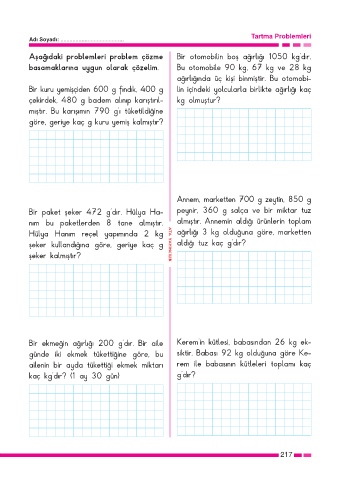 Adı Soyadı: ..............................
Tartma Problemleri
Aşağıdaki problemleri problem çözme
basamaklarına uygun olarak çözelim.
Bir kuru yemişçiden 600 g fındık, 400 g
çekirdek, 480 g badem alınıp karıştırıl-
mıştır. Bu karışımın 790 g'ı tüketildiğine
göre, geriye kaç g kuru yemiş kalmıştır?
Bir paket şeker 472 g'dır. Hülya Ha-
nım bu paketlerden 8 tane almıştır.
Hülya Hanım reçel yapımında 2 kg
şeker kullandığına göre, geriye kaç g
şeker kalmıştır?
Bir ekmeğin ağırlığı 200 g'dır. Bir aile
günde iki ekmek tükettiğine göre, bu
ailenin bir ayda tükettiği ekmek miktarı
kaç kg'dır? (1 ay 30 gün)
Bir otomobilin boş ağırlığı 1050 kg'dır.
Bu otomobile 90 kg, 67 kg ve 28 kg
ağırlığında üç kişi binmiştir. Bu otomobi-
lin içindeki yolcularla birlikte ağırlığı kaç
kg olmuştur?
Annem, marketten 700 g zeytin, 850 g
peynir, 360 g salça ve bir miktar tuz
almıştır. Annemin aldığı ürünlerin toplam
ağırlığı 3 kg olduğuna göre, marketten
aldığı tuz kaç g'dır?
Kerem'in kütlesi, babasından 26 kg ek-
siktir. Babası 92 kg olduğuna göre Ke-
rem ile babasının kütleleri toplamı kaç
g'dır?
217